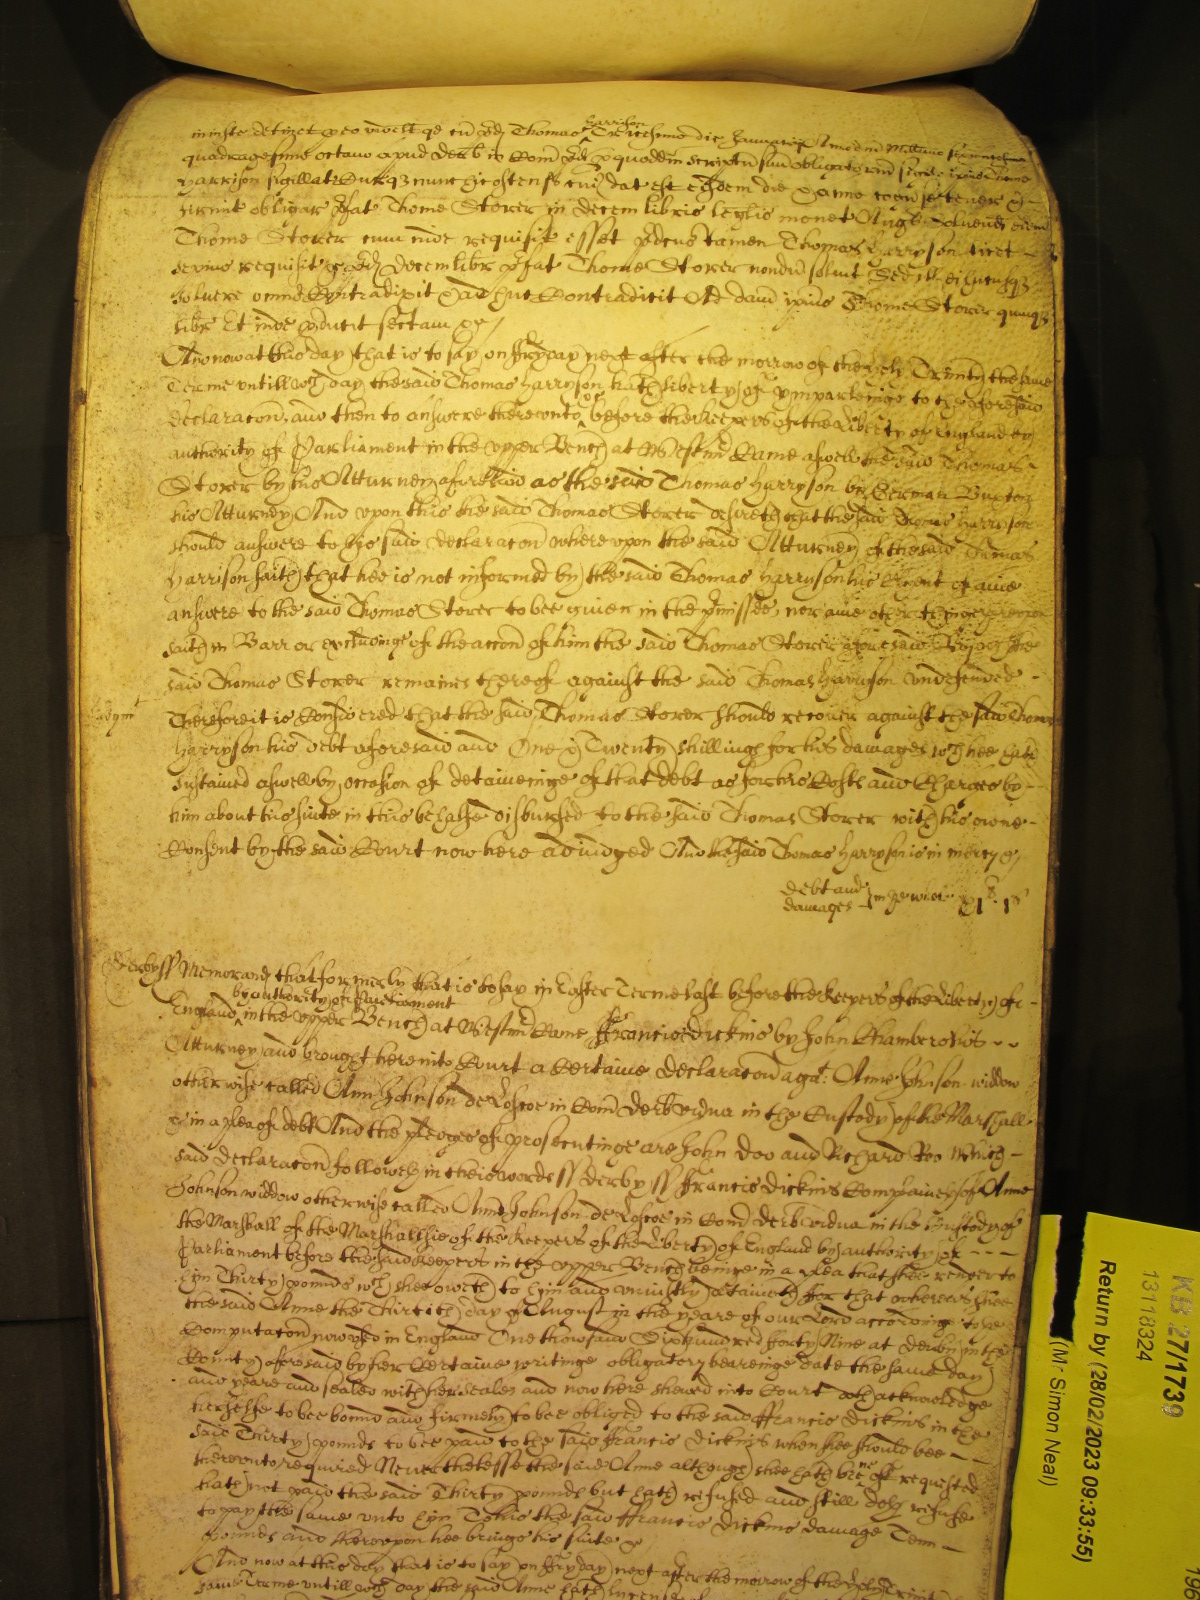 iniuste detinet &c eo videlt qd cu pdcus Thomas Harrison Tricesimo die Januarii Anno dni Millimo
quadragesimo octavo apud Derb in Com pd p quoddm scriptu suu obligatorm
Harrison sigillat Curq nunc hic ostens cui dat est eisdem die & anno
obligar pfat Thome Storer in decem libris leglis monet Angl Solvend eidem
Thome Storer cum inde requisit esset pdcus tamen Thomas Harryson licet
sepius requisit &c pd decem libr pfat Thome Storer nondu solvit Sed ill ei hucusq
solvere omnio Contradixit & adhuc Contradicit Ad damn ipius Thome Storer quinq
libr Et inde pducit sectam &c
And now at this day that is to say on ffryday next after the morrow of the holy Trinity the same
Terme untill wch day the said Thomas Harryson hath liberty of ymparleinge to the aforesaid
declaracon and then to answere thereunto &c before the Keepers of the Liberty of England by
authority of Parliament in the upper Bench at Westmr Came aswell the said Thomas
Storer by his Atturney aforesaid as the said Thomas Harryson by German Buxton
his Atturney And upon this the said Thomas Storer desireth that the said Thomas Harryson
should answere to his said declaracon whereupon the said Atturney of the said Thomas
Harrison saith that hee is not informed by the said Thomas Harryson his Client of anie
answere to the said Thomas Storer to bee given in the pmisses nor anie other thinge
saith in Barr or excludinge of the accon of him the said Thomas Storer aforesaid By wch the
said Thomas Storer remaines thereof against the said Thomas Harrison undefended
Judgmt
Therefore it is Considered that the said Thomas Storer should recover against the said Thomas
Harryson his debt aforesaid and One & Twenty shillings for his damages wch hee hath
sustained aswell by occasion of deteineinge of that debt as for his Costs and Charges by
him about his suite in this behalfe disbursed to the said Thomas Storer with his owne
Consent by the said Court now here adiudged And the said Thomas Harryson is in mercy &c
debt and
damages in ye whole xil is
Derby ss Memorand that formerly that is to say in Easter Terme last before the Keepers of the Liberty of
England by authority of Parliament in the upper Bench at Westmr Came ffrancis Dickins by John Chambers his
Atturney and brought here into Court a Certaine declaracon agt Anne Johnson widdow
otherwise called Ann Johnson de Loscoe in Com Derb vidua in the Custody of the Marshall
&c in a plea of debt And the pledges of prosecutinge are John Doo and Richard Roo Which
said declaracon followeth in theis words ss Derby ss ffrancis Dickins Complaineth of Anne
Johnson widdow otherwise called Anne Johnson de Loscoe in Com Derb vidua in the Custody of
the Marshall of the Marshallsie of the Keepers of the Liberty of England by authority of
Parliament before the said Keepers in the upper Bench beinge in a plea that shee render to
him Thirty pounds wch shee oweth to him and uniustly detaineth for that whereas shee
the said Anne the Thirtith day of August in the yeare of our Lord accordinge to ye
Computacon now used in England One thowsand Sixhundred forty Nine at Derby in the
County aforesaid by her Certaine writinge obligatory beareinge date the same day
and yeare and sealed with her seales and now here shewed into Court did acknowledge
herselfe to bee bound and firmely to bee obliged to the said ffrancis Dickins in the
said Thirty pounds to bee paid to the said ffrancis Dickins when shee should bee
thereunto required Neverthelesse the said Anne although shee hath bene oft requested
hath not paid the said Thirty pounds but hath refused and still doth refuse
to pay the same unto him To his the said ffrancis Dickins damage Tenn
pounds and thereupon hee brings his suite &c
And now at this day that is to say on ffryday next after the morrow of the holy Trinity
same Terme untill wch day the said Anne hath
KB 27/1739
13118324
Return by (28/02/2023 09:33:55)
(Mr Simon Neal)
196